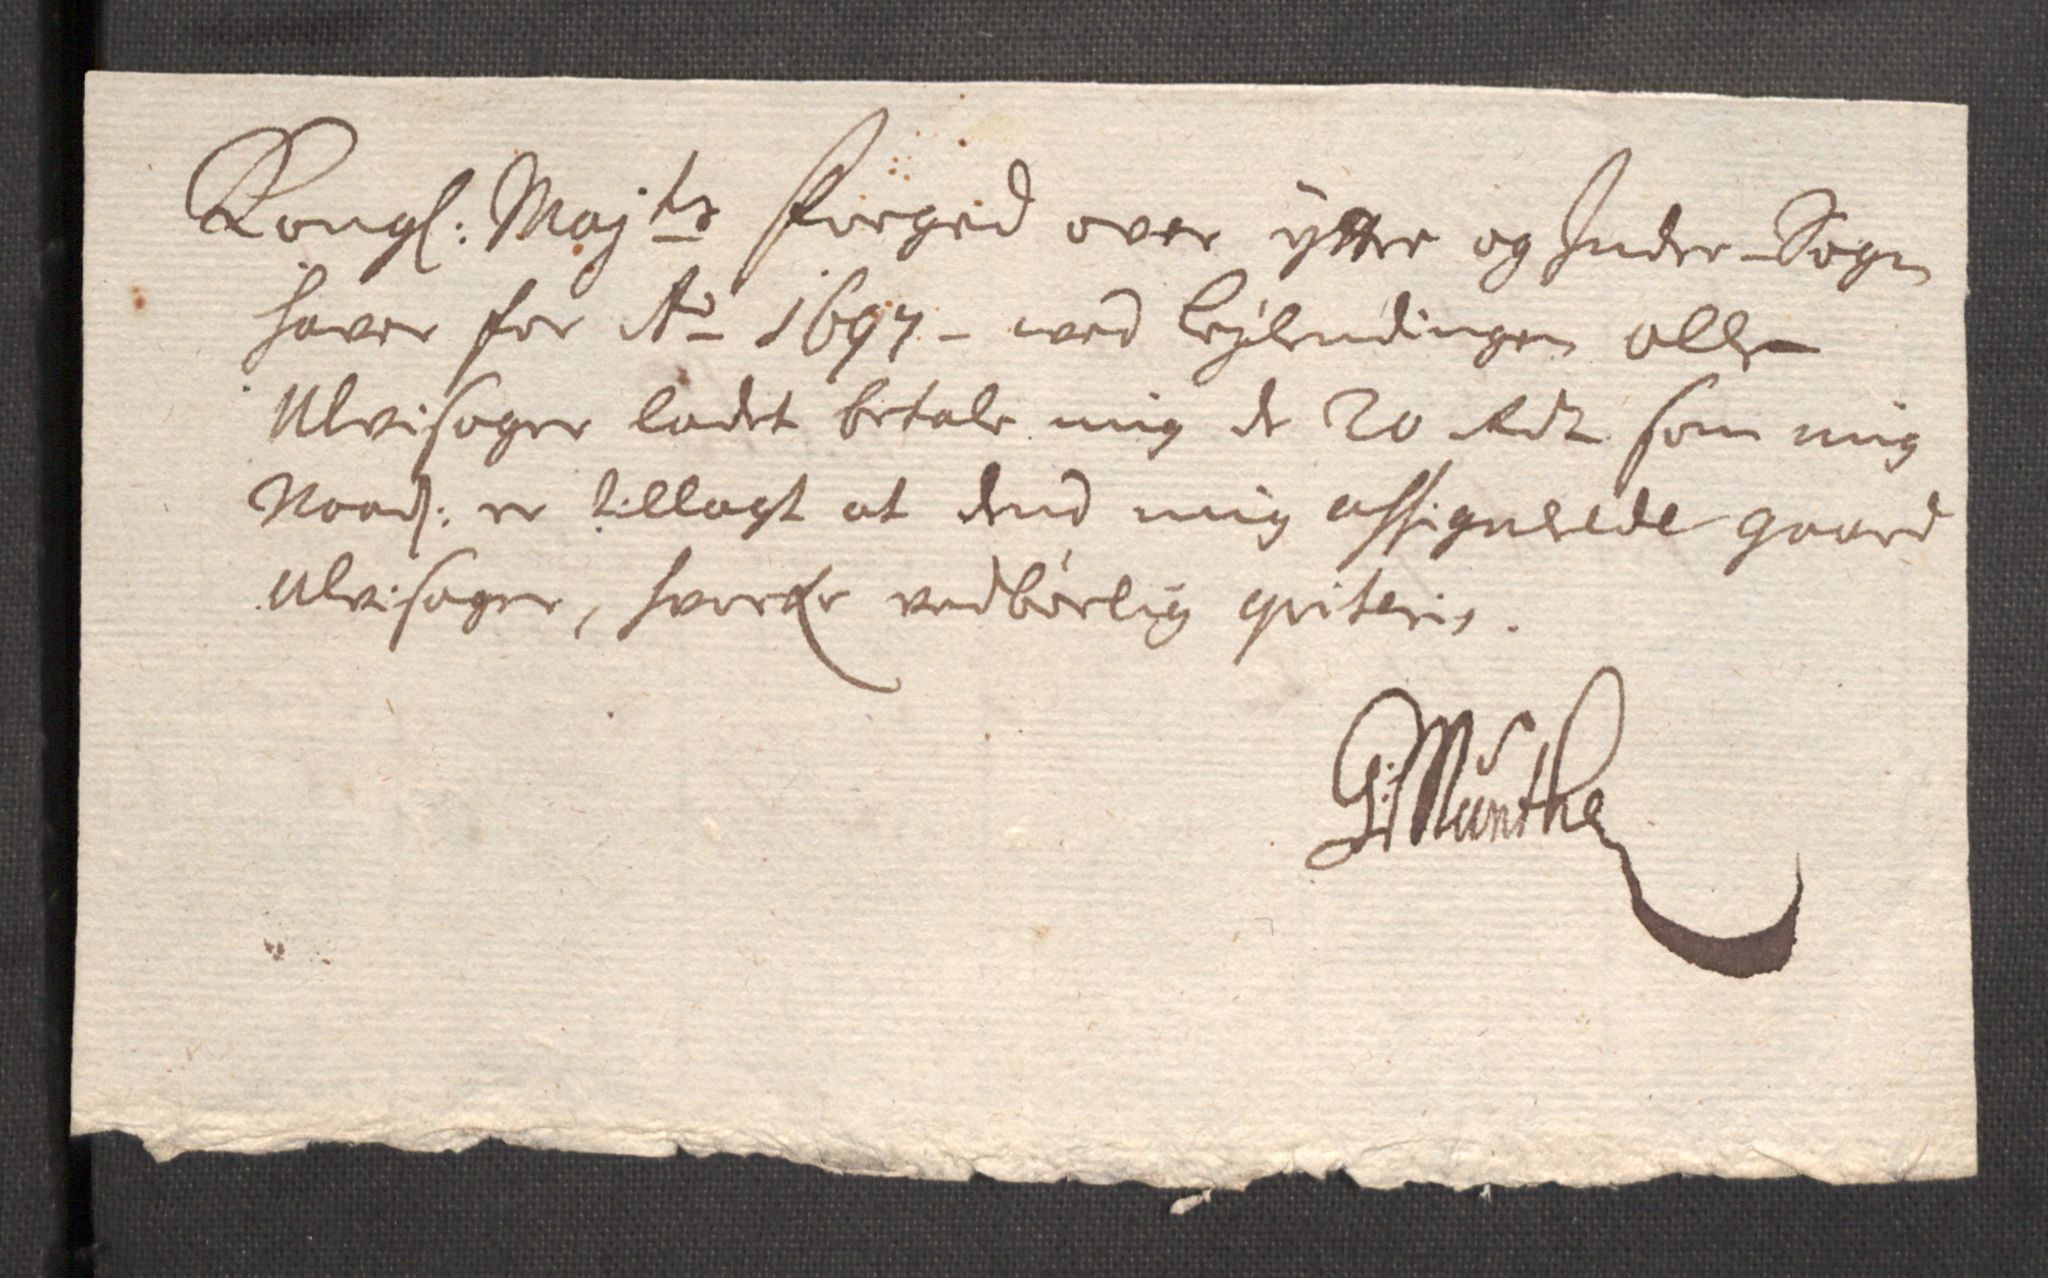 Kongl: Majts forged over ytter og Inder-Sogn
haver for Ao 1697 - ved leylendingen Olle
Ulvisager ladet betale mig de 20 Rdr som mig
Naadl: er tillagt at dend mig assignerede gaard
Ulvisager, hvorfor vedbørlig qviteris.
G: Munthe